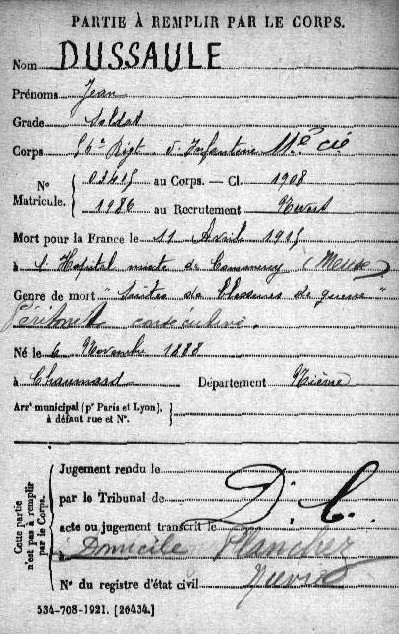 PARTIE À REMPLIR PAR LE CORPS.
Nom DUSSAULE
Prénoms Jean
Grade Soldat
Corps 56e Rigt d'Infanterie 11e cie
N° Matricule. 02415 au Corps. — Cl. 1908
1986 au Recrutement Nevers
Mort pour la France le 11 Avril 1915
à l'Hopital mixte de Commercy (Meuse)
Genre de mort "Suites de blessures de guerre"
Péritonite consécutive.
Né le 6 Novembre 1888
à Chaumard Département Nièvre
Arrt municipal (pr Paris et Lyon),
à défaut rue et N°.
Cette partie
n'est pas à remplir
par le Corps.
Jugement rendu le
par le Tribunal de
acte ou jugement transcrit le
D. C.
à Domicile Planchez
Nièvre
N° du registre d'état civil
534-708-1921. [26434.]